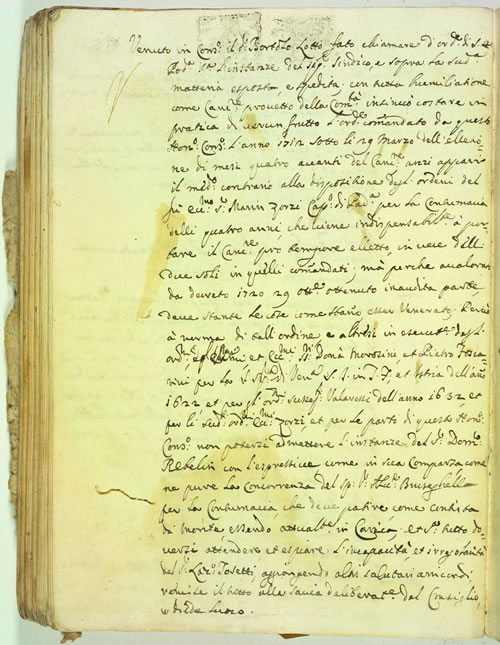 Venuto in Cons:o il d: Bortolo Lotto fato chiamare d'ord:e di S: E:
Pod:a sto l'instanze del Sig:r Sindico, e sopra la sud:a
matteria esposta, e spedita con tutta humiliatione
come Canc:re provetto della Com:tà insinuò costare in
pratica di verun frutto l'ord:e comandato da questo
Hon:o Cons:o l'anno 1712 sotto li 29 Marzo dell'ellerio-
ne di mesi quatro avanti del Canc:re anzi apparir
il med:o contrario alla dispositione degl'ordeni del
fu Ecc:mo S:r Marin Zorzi Cap:o di Pad:a per la Contumacia
delli quatro anni che viene indispensabilm:te à por-
tare il Canc:re pro tempore elletto in vece dell
due soli in quelli comandati; mà perche avalorar
da decreto 1720 29 Ott:e ottenuto inaudita parte
deve stante le cose come stano esser venerato. Perciò
à norma di tall'ordine e altresi in esecut:e degl'Ill:
ord:ni et Ecc:mi SS: Donà Morosini et Pietro Fosca-
rini per la S: di Ven:a S: I: in T: F: et Istria dell'año
1622 et per gl'ord:ni susseg:ti Valaressi dell'anno 1632 et
per li sud:ti ord:ni Ecc:mi Zorzi, et per le parti di questo Hon:o
Cons:o non potersi admettere l'instanze del S:r Dom:co
Rebelin con l'espressive come in sua Comparsa come
ne pure la Concorrenza del Sp: S:r Alu:e Buseghella
per la Contumacia che deve patire come
di Monte essendo attual:te in Carica, et S:r tutto do-
versi attendere et esquire. L'incapacità et irregolarità
del S:r Laz:o Tosetti, aggiongendo altri salutari aricordi
rimise il tutto alla savia deliberat:ne del Consiglio,
e diede luoco.